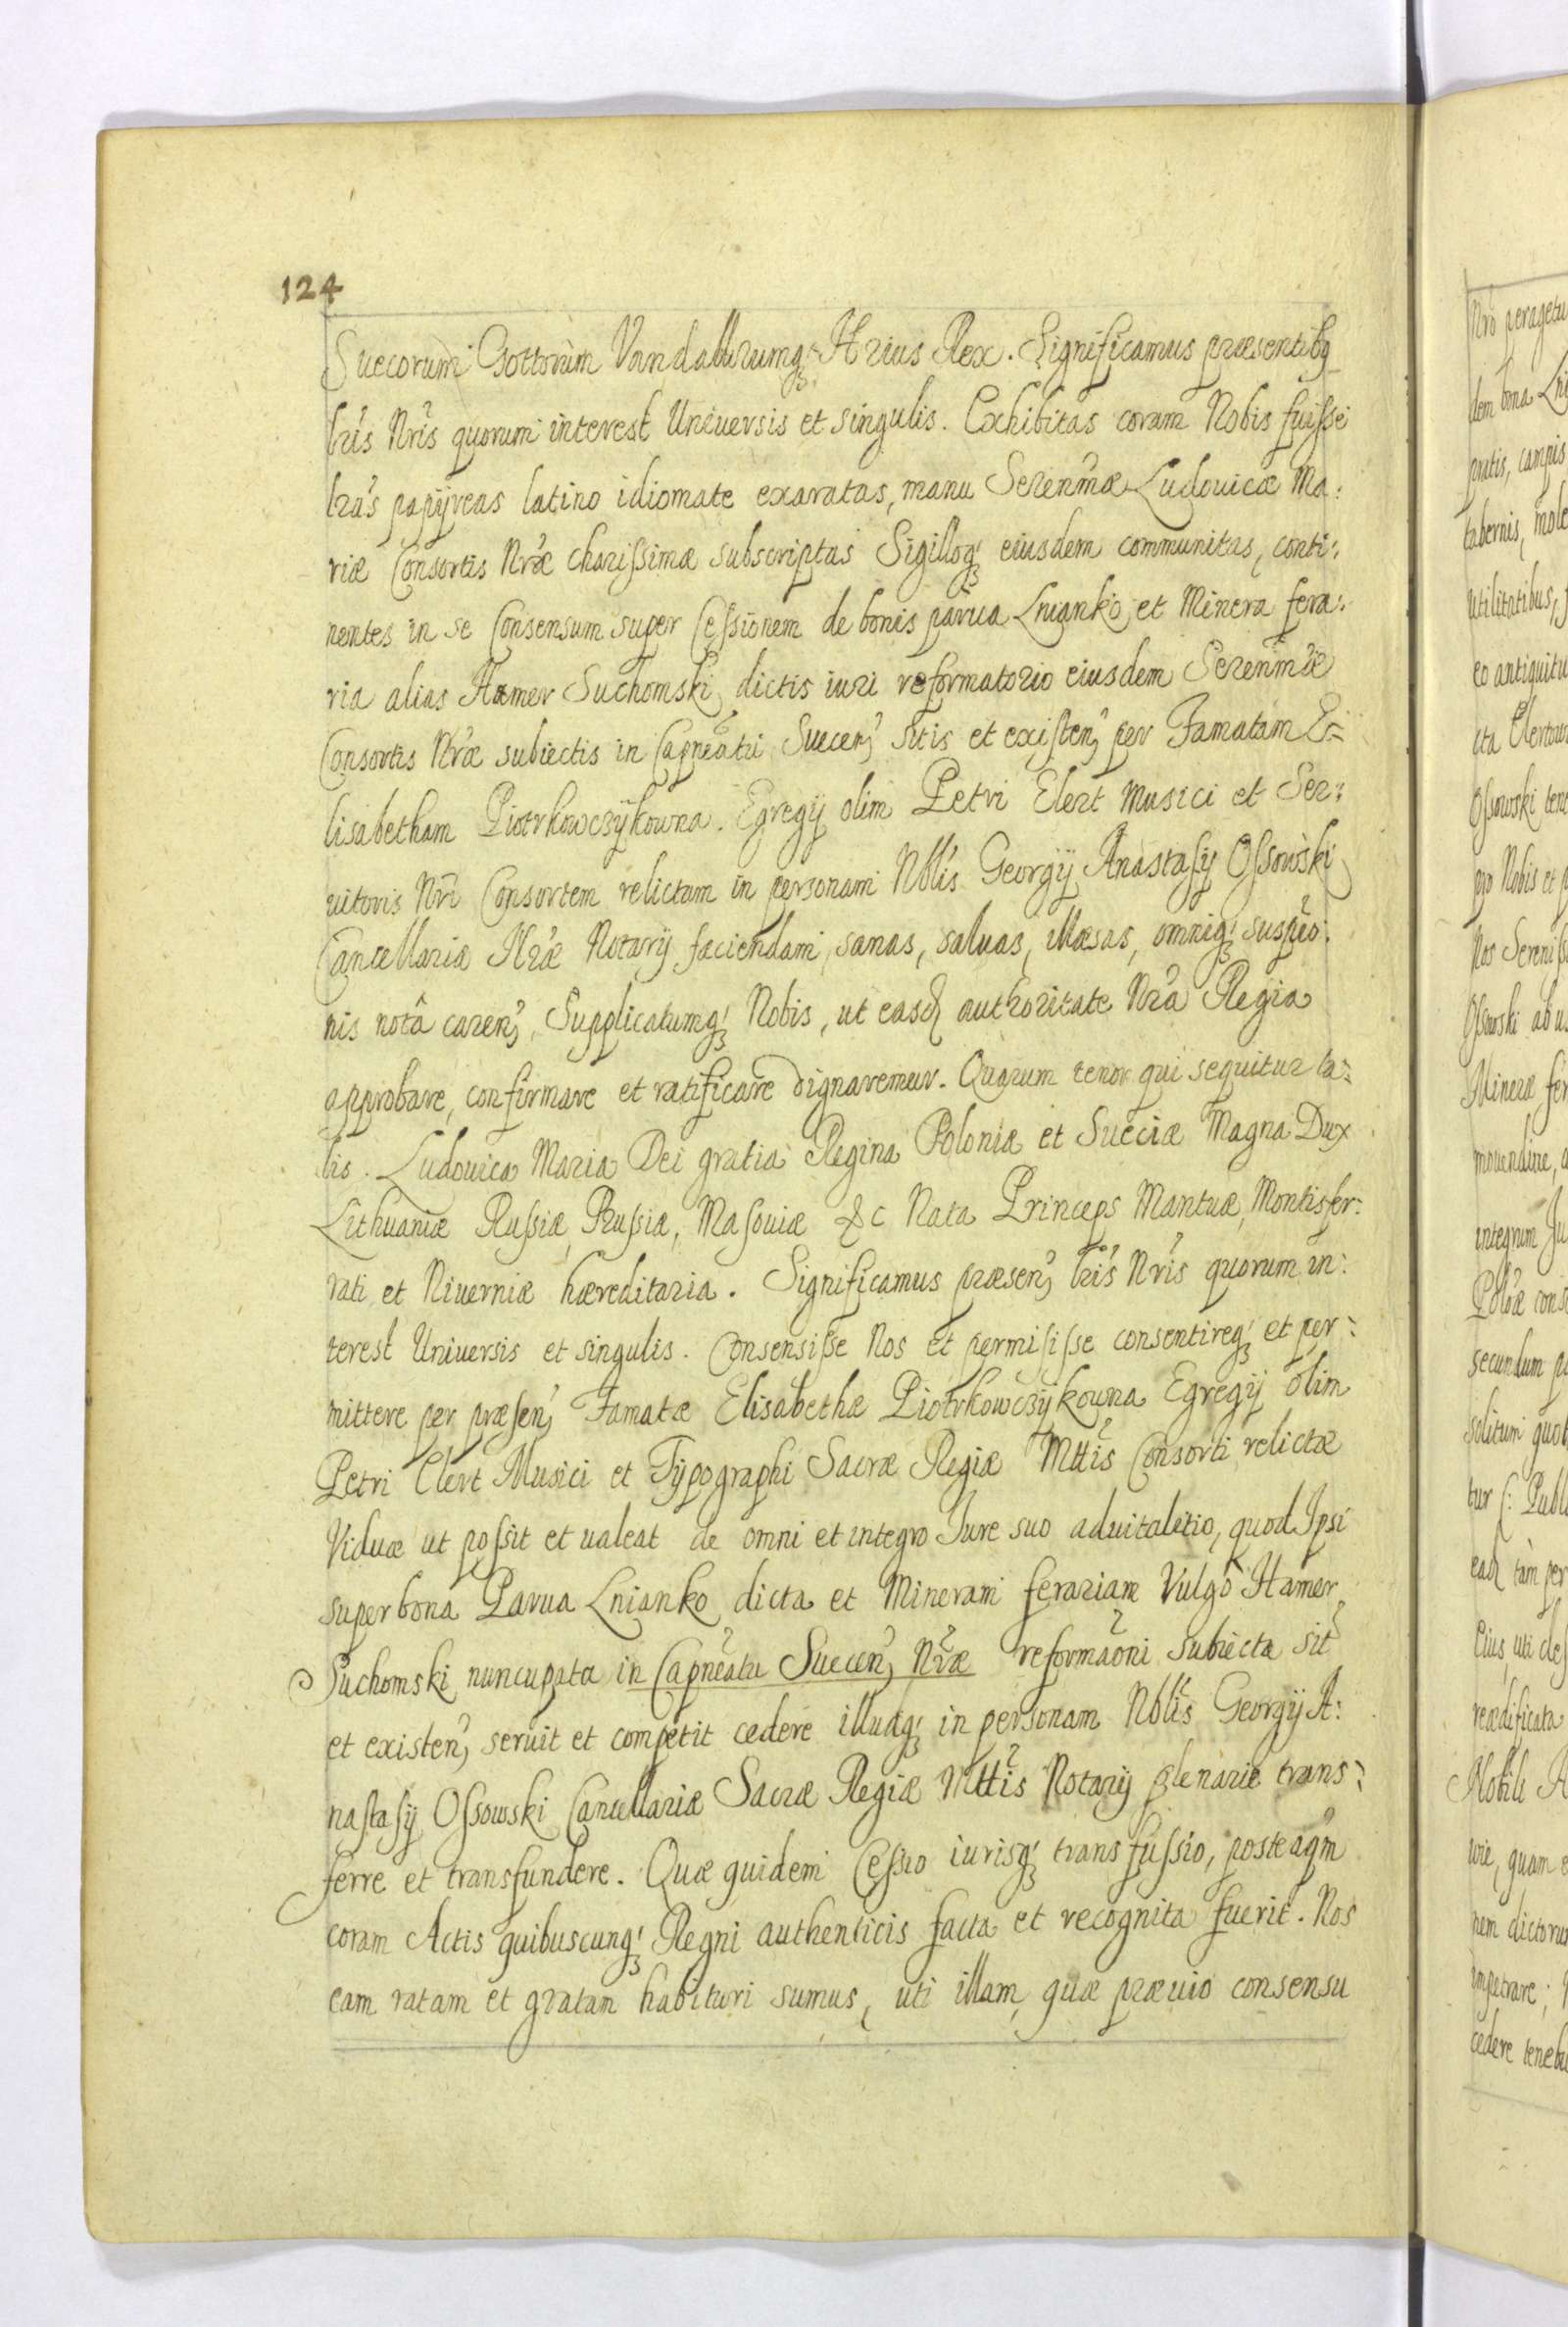 124
Suecorum Gottorum Vandallorumq; Hrius Rex. Significamus præsentibq
lris Nris quorum interest Uniuersis et singulis. Exhibitas coram Nobis fuisse
lras papyreas latino idiomate exaratas, manu Serenmæ Ludouicæ Ma:
riæ Consortis Nræ charissimæ subscriptas Sigilloq; eiusdem communitas, conti:
nentes in se Consensum super Cessionem de bonis parua Lnianko et Minera fera:
ria alias Hamer Suchomski dictis iuri reformatorio eiusdem Serenmæ
Consortis Nræ subiectis in Capneatu Suecen; sitis et existen; per Famatam E=
lisabetham Piotrkowczykowna. Egregij olim Petri Elert Musici et Ser:
uitoris Nri Consortem relictam in personam Nblis Georgij Anastasij Ossowski
Cancellariæ Nræ Notarij faciendam, sanas, saluas, illæsas, omniq; suspio:
nis notâ caren; Supplicatumq; Nobis, ut easd authoritate Nra Regia
approbare, confirmare et ratificare dignaremur. Quarum tenor qui sequitur ta:
lis. Ludouica Maria Dei gratia Regina Poloniæ et Sueciæ Magna Dux
Lithuaniæ Russiæ, Prussiæ, Masouiæ &c Nata Princeps Mantuæ, Montisfer:
rati et Niuerniæ hæreditaria. Significamus præsen; lris Nris quorum in:
terest Uniuersis et singulis. Consensisse Nos et permisisse consentireq; et per:
mittere per præsen; Famatæ Elisabethæ Piotrkowczykowna Egregij olim
Petri Elert Musici et Typographi Sacræ Regiæ Mttis Consorti relictæ
Viduæ ut possit et ualeat de omni et integro Iure suo aduitalitio, quod Ipsi
super bona Parua Lnianko dicta et Mineram ferariam Vulgo Hamer
Suchomski nuncupata in Capneatu Suecen; Nræ reformaoni subiecta sit
et existen; seruit et competit cedere illudq; in personam Nblis Georgij A:
nastasij Ossowski Cancellariæ Sacræ Regiæ Mttis Notarij plenarie trans:
ferre et transfundere. Quæ quidem Cessio iurisq; transfussio, posteaqm
coram Actis quibuscunq; Regni authenticis facta et recognita fuerit. Nos
eam ratam et gratam habituri sumus, uti illam, quæ præuio consensu